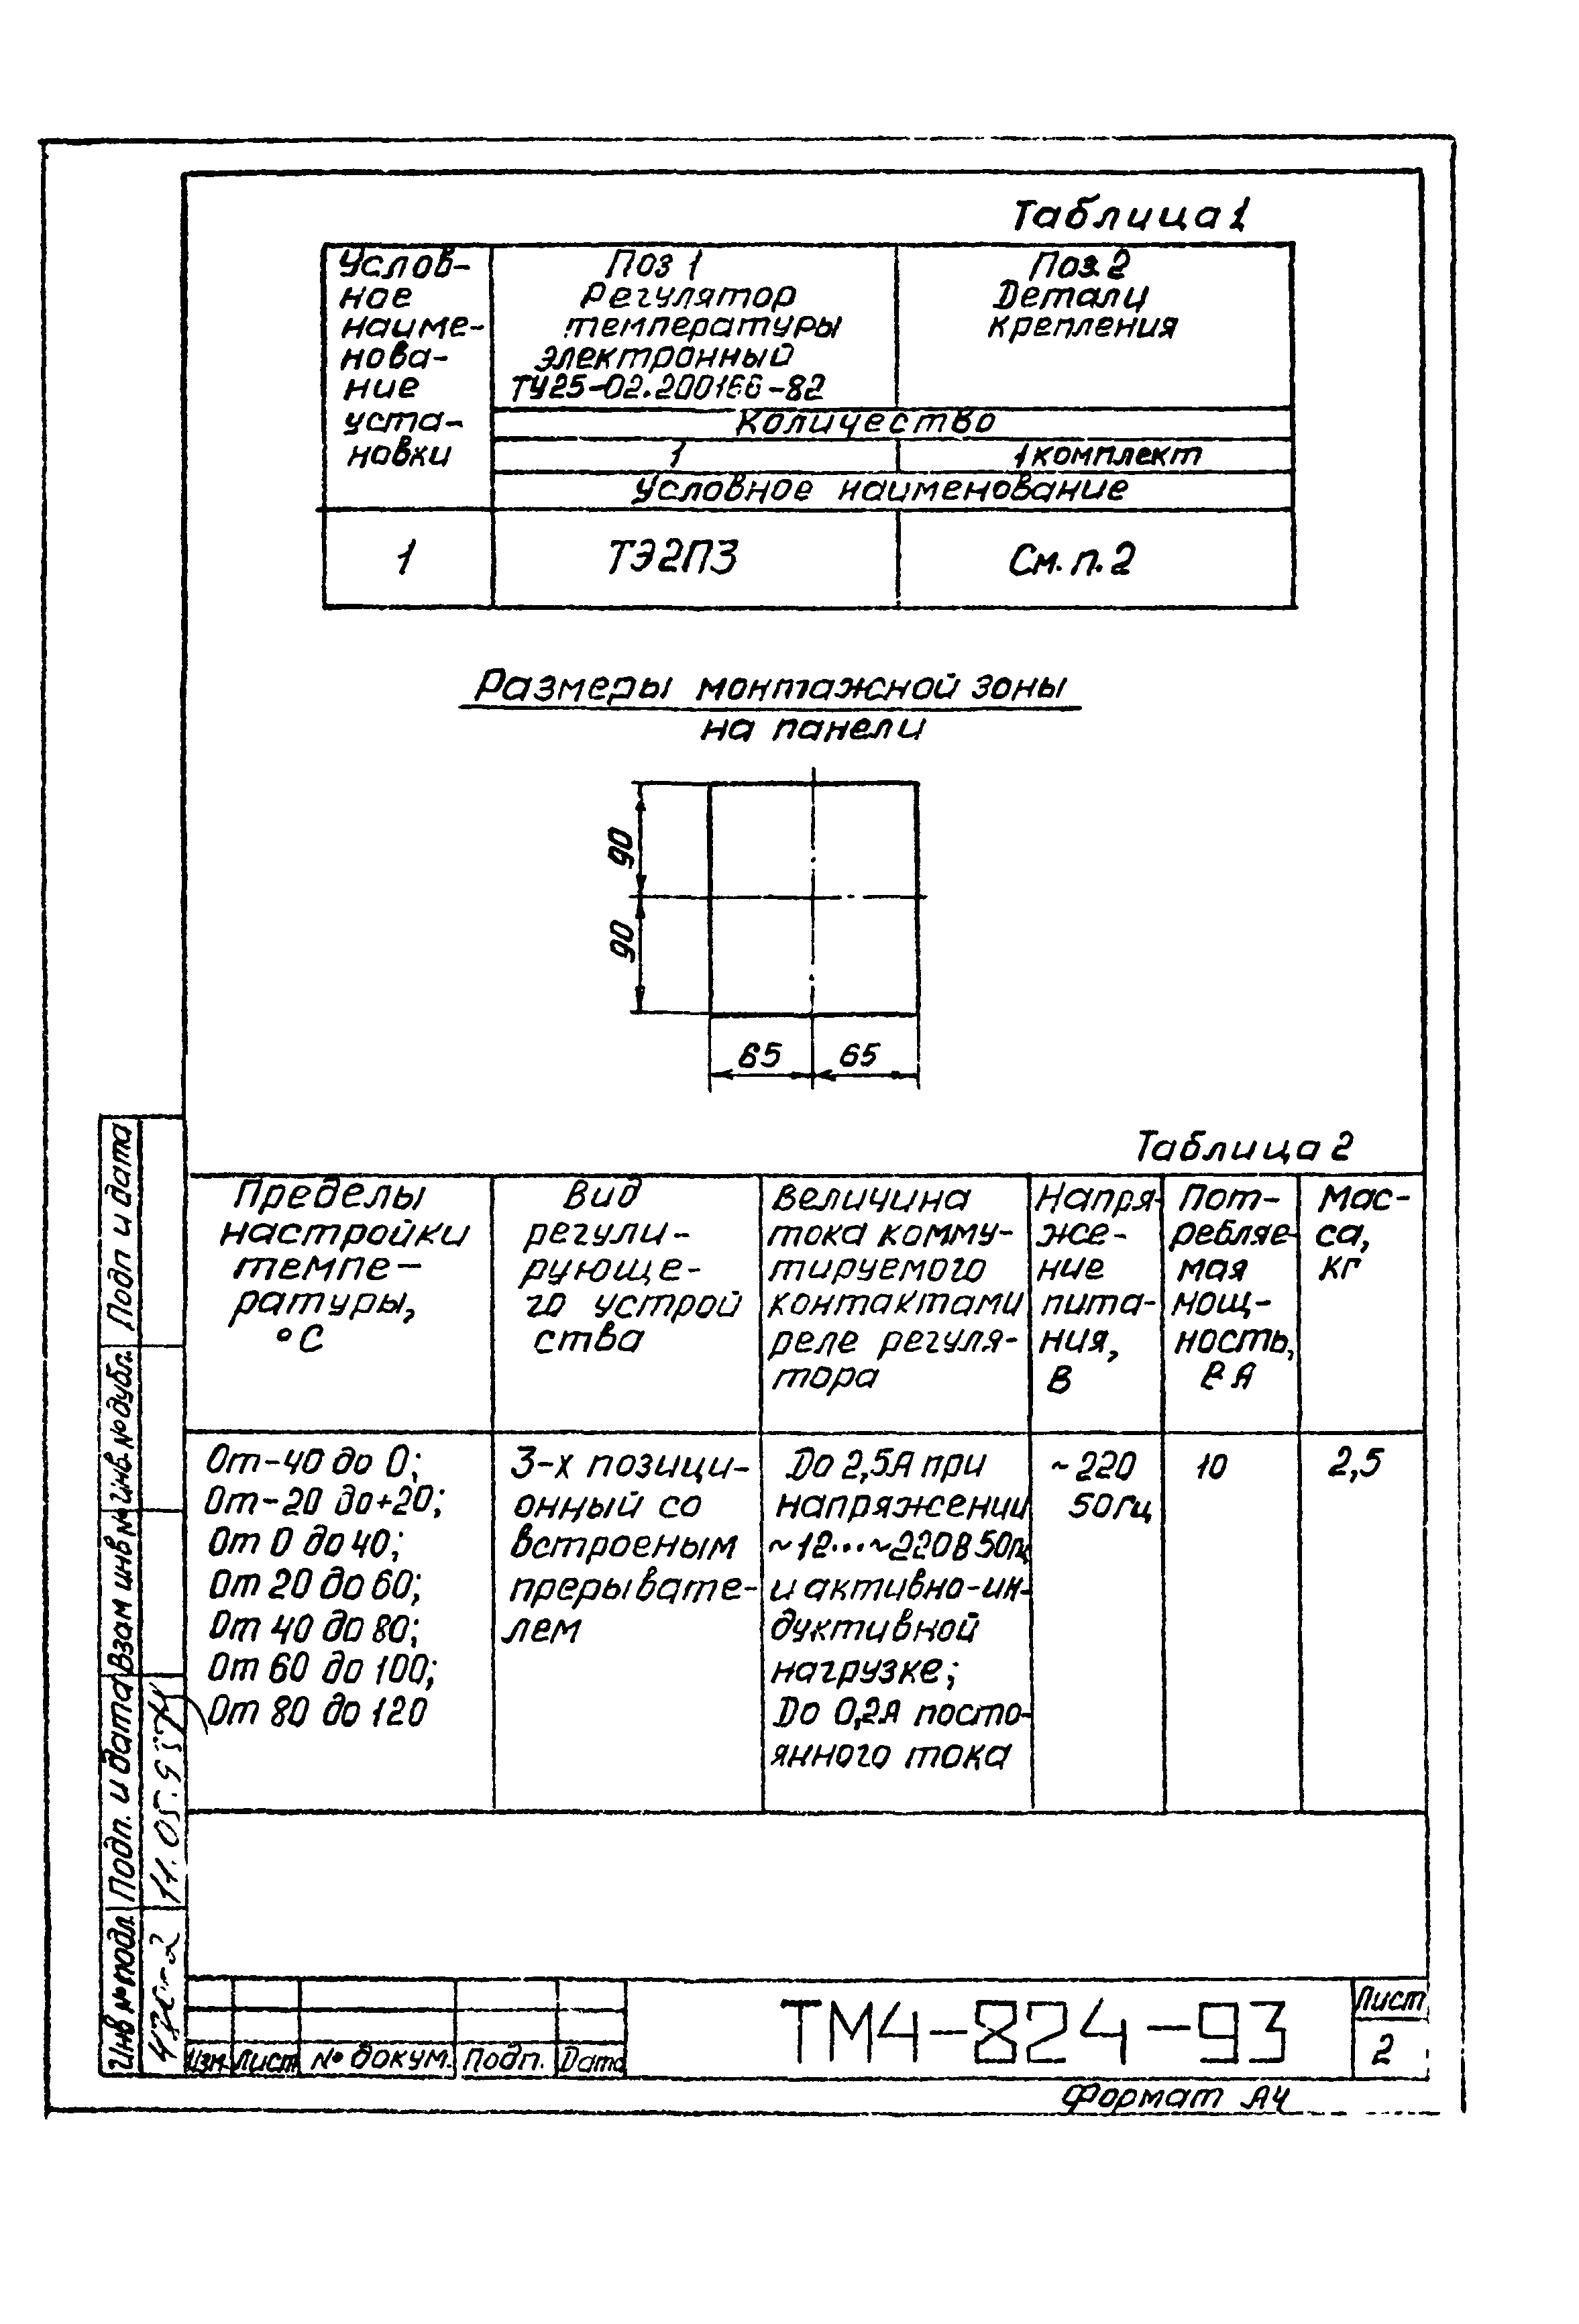 Таблица 1
Услов-
ное
наиме-
нова-
ние
уста-
новки
Поз 1
Регулятор
температуры
электронный
ТУ25-02.200166-82
Поз. 2
Детали
крепления
Количество
1
1 комплект
Условное наименование
1
ТЭ2П3
См. п. 2
Размеры монтажной зоны
на панели
90
90
65
65
Таблица 2
Пределы
настройки
темпе-
ратуры,
°С
Вид
регули-
рующе-
го устрой
ства
Величина
тока комму-
тируемого
контактами
реле регуля-
тора
Напря-
же-
ние
пита-
ния,
В
Пот-
ребляе-
мая
мощ-
ность,
В А
Мас-
са,
кг
От-40 до 0;
От-20 до+20;
От 0 до 40;
От 20 до 60;
От 40 до 80;
От 60 до 100;
От 80 до 120
3-х позици-
онный со
встроеным
прерывате-
лем
До 2,5А при
напряжении
~12...~220В 50Гц
и активно-ин-
дуктивной
нагрузке;
До 0,2А посто-
янного тока
~220
50Гц
10
2,5
Подп и дата
Инв. № дубл.
Взам инв №
Подп. и дата
11.05.95
Инв № подл.
Изм.
Лист
№ докум.
Подп.
Дата
ТМ4-824-93
Лист
2
Формат А4